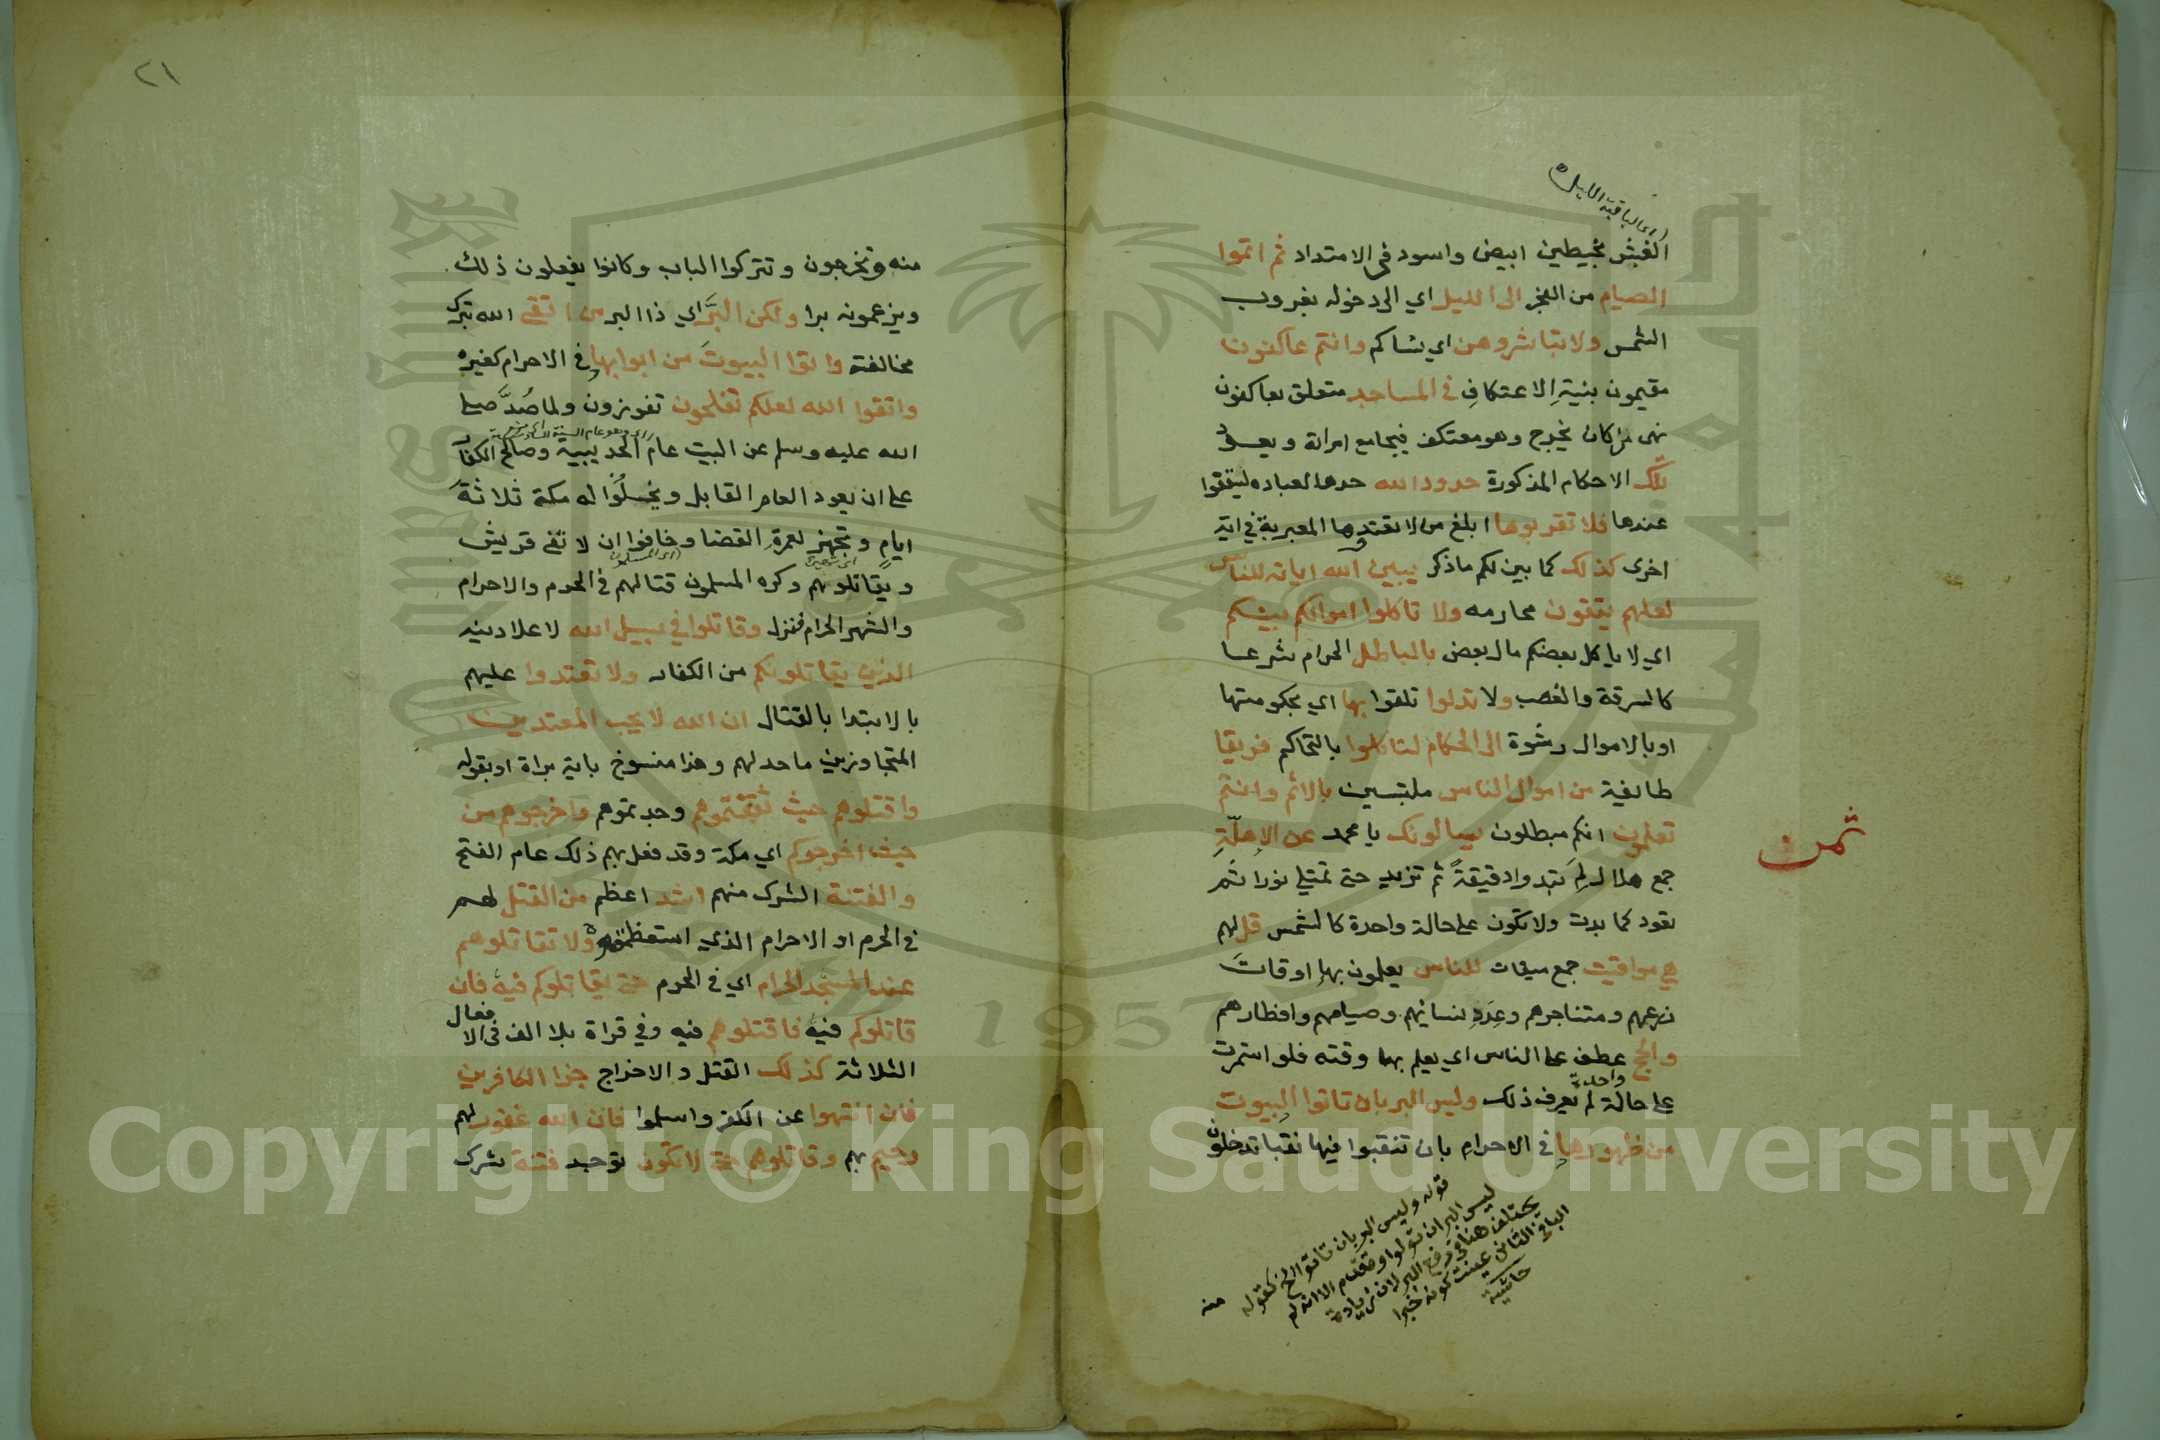 الغبش بخيطين ابيض واسود في الامتداد ثم اتموا
الصيام من الفجر الى الليل اي الى دخوله بغروب
الشمس ولا تباشروهن اي نساكم وانتم عاكفون
مقيمون بنية الاعتكاف في المساجد متعلق بعاكفون
نهى من كان يخرج وهو معتكف فيجامع امراته ويعود
تلك الاحكام المذكورة حدود الله حدها لعباده ليقفوا
عندها فلا تقربوها ابلغ من لا تعتدوها المعبر به في اية
اخرى كذلك كما بين لكم ما ذكر يبين الله اياته للناس
لعلهم يتقون محارمه ولا تاكلوا اموالكم بينكم
اي لا ياكل بعضكم مال بعض بالباطل الحرام شرعا
كالسرقة والغصب ولا تدلوا تلقوا بها اي بحكومتها
او بالاموال رشوة الى الحكام لتاكلوا بالتحاكم فريقا
طايفة من اموال الناس ملتبسين بالاثم وانتم
تعلمون انكم مبطلون يسالونك يا محمد عن الاهلّةِ
جمع هلال لِمَ تبدوا دقيقةً ثم تزيد حتى تمتلي نورا ثم
تعود كما بدت ولا تكون على حالة واحدة كالشمس قل لهم
هي مواقيت جمع ميقات للناس يعلمون بها اوقات
زرعهم ومتاجرهم وعِدَدِ نسائهم وصيامهم وافطارهم
والحج عطف على الناس اي يعلم بها وقته فلو استمرت
على حالة واحدة لم يعرف ذلك وليس البر بان تاتوا البيوت
من ظهورها في الاحرام بان تنقبوا فيها نقبا تدخلون
اي الباقية الليل
ثمن
قوله وليس البر بان تاتوا الخ كقوله
ليس البر ان تولوا وتقدم الا انه لم
يختلف هنا في رفع البر لان زيادة
الباء في الثاني عينت كونه خبرا
حاشية
منه
٢١
منه وتخرجون وتتركوا الباب وكانوا يفعلون ذلك
ويزعمونه برا ولكن البرَّ اي ذا البر من اتقى الله بترك
مخالفته واتوا البيوتَ من ابوابها في الاحرام كغيره
واتقوا الله لعلكم تفلحون تفوزون ولما صُدَّ صلى
الله عليه وسلم عن البيت عام الحديبية وصالح الكفار
على ان يعود العام القابل ويخلُّوا له مكة ثلاثة
ايام وتجهز لعمرةِ القضا وخافوا ان لا تفي قريش
ويقاتلوهم وكره المسلمون قتالهم في الحرم والاحرام
والشهر الحرام فنزل وقاتلوا في سبيل الله لاعلا دينه
الذين يقاتلونكم من الكفار ولا تعتدوا عليهم
بالابتدا بالقتال ان الله لا يحب المعتدين
المتجاوزين ما حد لهم وهذا منسوخ باية براة او بقوله
واقتلوهم حيث ثقفتموهم وجدتموهم واخرجوهم من
حيث اخرجوكم اي مكة وقد فعل بهم ذلك عام الفتح
والفتنة الشرك منهم اشد اعظم من القتل لهم
في الحرم او الاحرام الذي استعظمتموه ولا تقاتلوهم
عند المسجد الحرام اي في الحرم حتى يقاتلوكم فيه فان
قاتلوكم فيه فاقتلوهم فيه وفي قراة بلا الف في الافعال
الثلاثة كذلك القتل والاخراج جزا الكافرين
فان انتهوا عن الكفر واسلموا فان الله غفور لهم
رحيم بهم وقاتلوهم حتى لا تكون توجد فتنة شرك
1957
Copyright © King Saud University